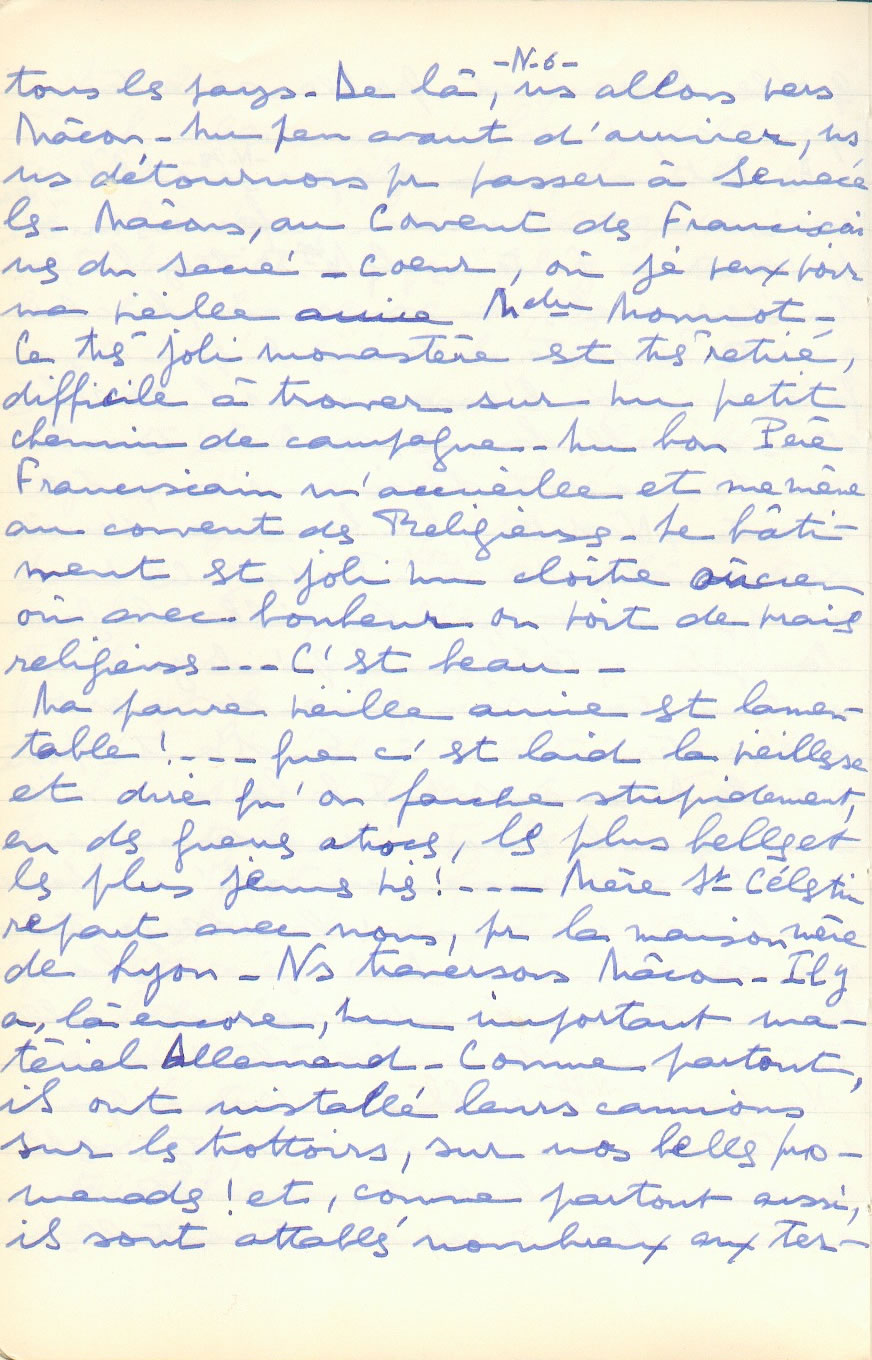 -N-6-
tous les pays - De là, ns allons vers
Mâcon - Un peu avant d'arriver, ns
ns détournons pr passer à Senecé
les - Mâcons, au Couvent des Franciscai
nes du Sacré - Coeur, où je veux voir
ma vieille amie Mdme Monnot -
Ce très joli monastère est très retiré,
difficile à trouver sur un petit
chemin de campagne - Un bon Père
Franciscain m'accueille et me mène
au couvent des Religieuses - Le bâti-
ment est joli un cloître ancien
où avec bonheur on voit de vrais
religieuses --- C'est beau -
Ma pauvre vieille amie est lamen-
table ! ---- que c'est laid la vieillesse
et dire qu'on fauche stupidement,
en des guerres atroces, les plus belles et
les plus jeunes vies ! --- Mère St Célestin
repart avec nous, pr la maison mère
de Lyon - Ns traversons Mâcon - Il y
a, là encore, un important ma-
tériel Allemand - Comme partout,
ils ont installé leurs camions
sur les trottoirs, sur nos belles pro-
menades ! et, comme partout aussi,
ils sont attablés nombreux aux ter-